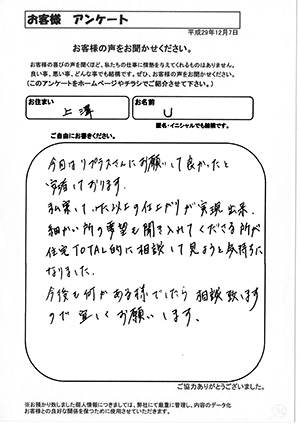 お客様 アンケート
平成29年12月7日
お客様の声をお聞かせください。
お客様の喜びの声を聞くほど、私たちの仕事に情熱を与えてくれるものはありません。
良い事、悪い事、どんな事でも結構です。ぜひ、お客様の声をお聞かせください。
(このアンケートをホームページやチラシでご紹介させて下さい。)
お住まい
上澤
お名前
U
匿名・イニシャルでも結構です。
ご自由にお書きください。
今回はリプラスさんにお願いして良かったと
実在しております。
私策していた以上の仕上がりが実現出来、
細かい所の要望も聞き入れてくださる所が
住宅TOTAL的に相談して見ようと気持ちに
なりました。
今後も何かある様でしたら相談致します
ので宜しくお願いします。
ご協力ありがとうございました。
※お預かり致しました個人情報につきましては、弊社にて厳重に管理し、内容のデータ化
お客様との良好な関係を保つために使用させていただきます。